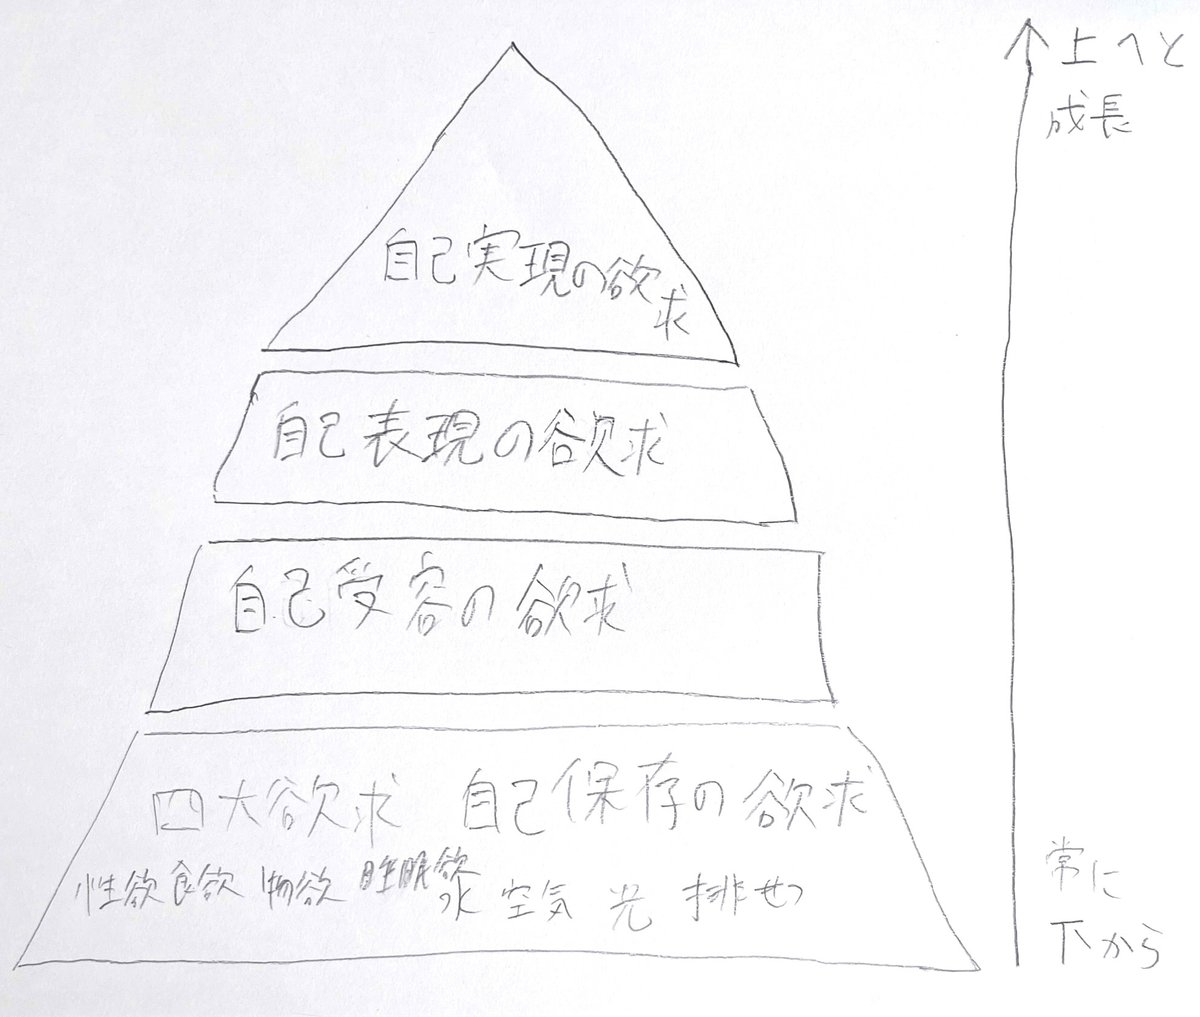 上へと
成長
自己実現の欲求
自己表現の欲求
自己受容の欲求
四大欲求 自己保存の欲求
性欲 食欲 物欲 睡眠欲 水 空気 光 排せつ
常に
下から